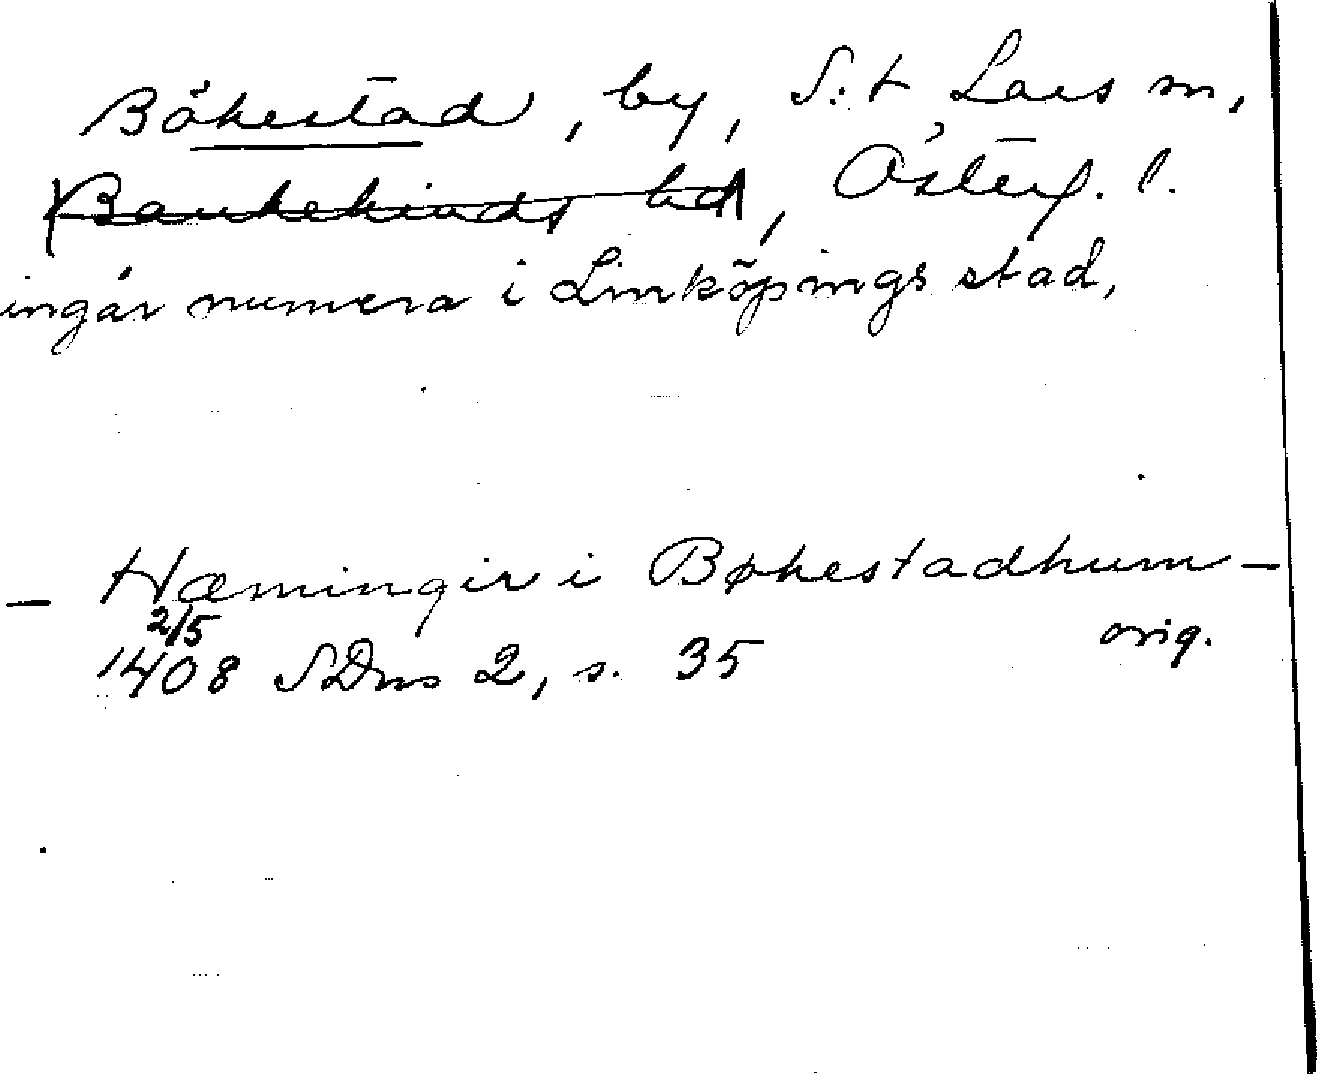 Bökestad, by, S:t Lars sn,
Bankekinds hd, Österg. l.
ingår numera i Linköpings stad,
– Hæmingir i Bøkestadhum –
2/5 orig.
1408 SDns 2, s. 35